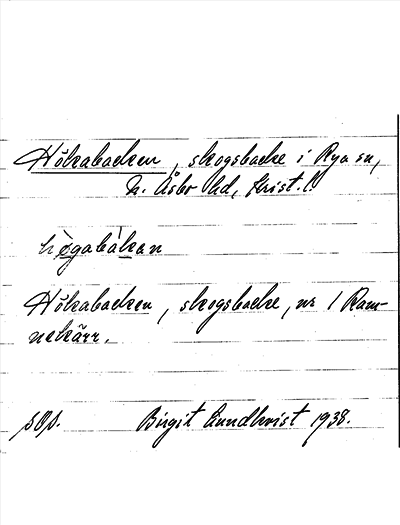 Hökabacken, skogsbacke i Rya sn,
N. Åsbo hd, Krist. l.
hø̀gabákan
Hökabacken, skogsbacke, nr 1 Ram-
nekärr.
Birgit Lundkvist 1938.